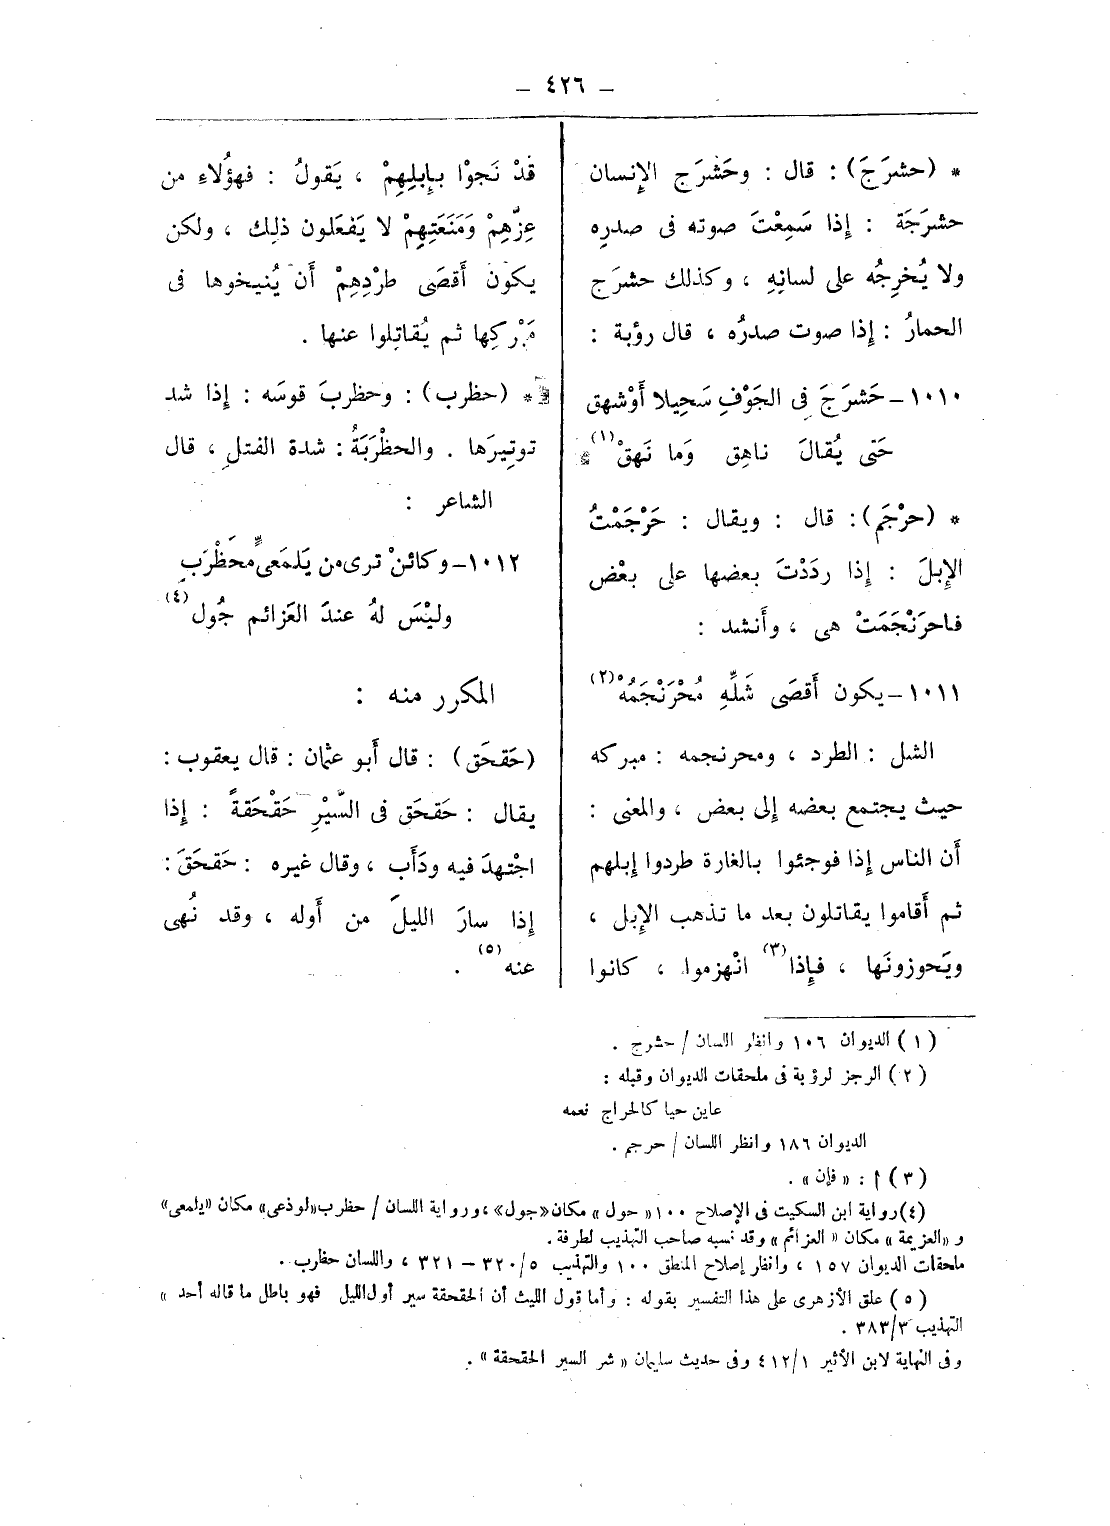 — ٤٢٦ —
* (حشرَجَ) : قال : وحَشْرَج الإِنسان
حشرَجَة : إِذا سَمِعْتَ صوته فى صدرِه
ولا يُخرِجُه على لسانِهِ ، وكذلك حشرَج
الحمارُ : إِذا صوت صدرُه ، قال رؤبة :
١٠١٠ – حَشرَجَ فِى الجَوْفِ سَحِيلا أَوْشهق
حَتى يُقالَ ناهِق وَما نَهقْ(١)
* (حرْجَم) : قال : ويقال : حَرْجَمْتُ
الإِبلَ : إِذا ردَدْتَ بعضها على بعْض
فاحرَنْجَمَتْ هى ، وأَنشد :
١٠١١ – يكون أَقصَى شَلِّهِ مُحْرَنْجَمُهْ(٢)
الشل : الطرد ، ومحرنجمه : مبركه
حيث يجتمع بعضه إِلى بعض ، والمعنى :
أَن الناس إِذا فوجئوا بالغارة طردوا إِبلهم
ثم أَقاموا يقاتلون بعد ما تذهب الإِبل ،
ويَحوزونَها ، فإِذا(٣) انْهزموا ، كانوا
قدْ نَجوْا بإِبلِهِمْ ، يَقولُ : فهؤُلاءِ من
عِزِّهِمْ وَمَنَعَتِهِمْ لا يَفعَلون ذلِك ، ولكن
يكون أَقصَى طرْدِهِمْ أَن يُنيخوها فى
مَبْركِها ثم يُقاتِلوا عنها .
* (حظرب) : وحظربَ قوسَه : إِذا شد
توتِيرَها . والحظْرَبَةُ : شدة الفتلِ ، قال
الشاعر :
١٠١٢ – وكائنْ ترى من يَلمَعىٍّ محَظْرَبِ
وليْسَ لهُ عندَ العَزائم جُول(٤)
المكرر منه :
(حَقحَق) : قال أَبو عثمان : قال يعقوب :
يقال : حَقحَق فى السَّيْرِ حَقْحَقةً : إِذا
اجْتهدَ فيه ودَأَب ، وقال غيره : حَقحَقَ :
إِذا سارَ الليلَ من أَوله ، وقد نُهى
عنه(٥) .
(١) الديوان ١٠٦ وانظر اللسان / حشرج .
(٢) الرجز لرؤبة فى ملحقات الديوان وقبله :
عاين حيا كالحراج نعمه
الديوان ١٨٦ وانظر اللسان / حرجم .
(٣) أ : « فإن » .
(٤) رواية ابن السكيت فى الإصلاح ١٠٠ « حول » مكان « جول » ، ورواية اللسان / حظرب « لوذعى » مكان « يلمعى »
و « العزيمة » مكان « العزائم » وقد نسبه صاحب التهذيب لطرفة .
ملحقات الديوان ١٥٧ ، وانظر إصلاح المنطق ١٠٠ والتهذيب ٣٢٠/٥ – ٣٢١ ، واللسان حظرب .
(٥) علق الأزهرى على هذا التفسير بقوله : وأما قول الليث أن الحقحقة سير أول الليل فهو باطل ما قاله أحد »
التهذيب ٣٨٣/٣ .
وفى النهاية لابن الأثير ٤١٢/١ وفى حديث سلمان « شر السير الحقحقة » .